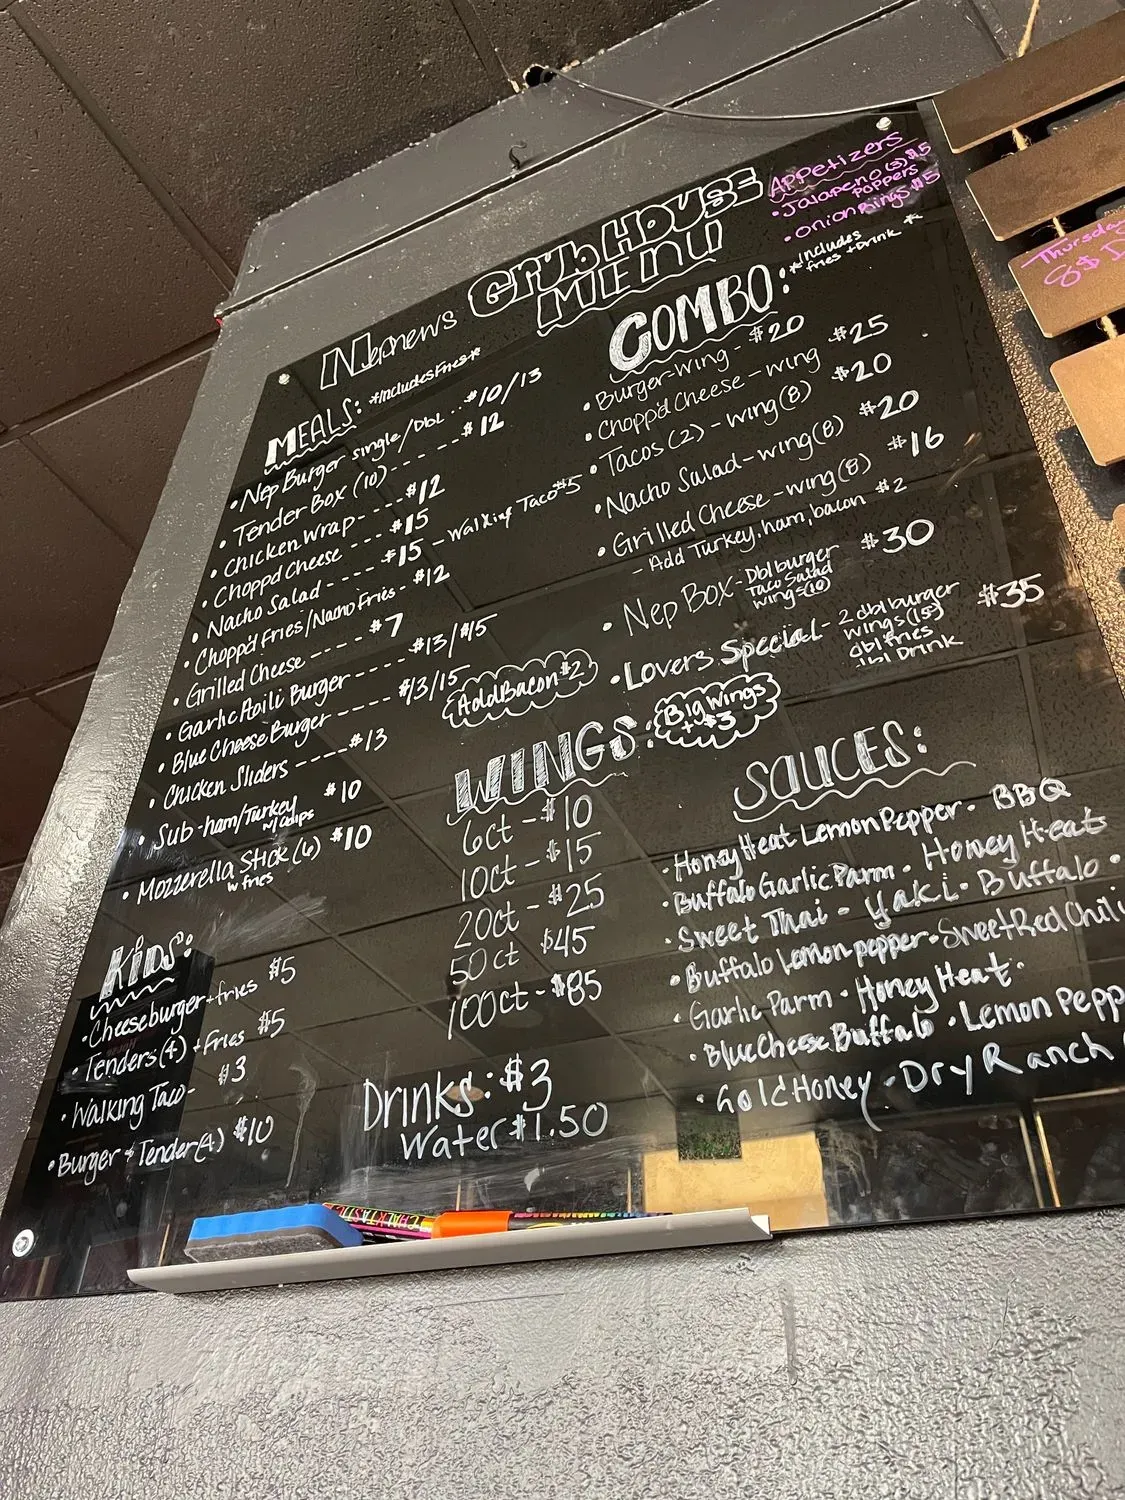 Nepnew's Grub House
MENU
Appetizers
• Jalapeno (3) $5
Poppers
• Onion Rings $5
MEALS: *Includes Fries*
• Nep Burger single/Dbl ... $10/13
• Tender Box (10) ---- $12
• Chicken Wrap --- $12
• Chopp'd Cheese --- $15
• Nacho Salad ---- $15 - Walking Taco $5
• Chopp'd Fries/Nacho Fries - $12
• Grilled Cheese ---- $7
• Garlic Aoili Burger ---- $13/$15
• Blue Cheese Burger ---- $13/15
• Chicken Sliders ---- $13
• Sub-ham/Turkey $10
w/chips
• Mozzerella Stick (6) $10
w fries
Add Bacon $2
COMBO: *Includes
fries + Drink *
• Burger-Wing - $20
• Chopp'd Cheese - wing $25
• Tacos (2) - wing (8) $20
• Nacho Salad - wing (8) $20
• Grilled Cheese - wing (8) $16
- Add Turkey, ham, bacon $2
• Nep Box - Dbl burger $30
Taco Salad
wings (10)
• Lovers Special - 2 dbl burger $35
wings (15)
dbl fries
1bl Drink
Kids:
• Cheeseburger + fries $5
• Tenders (4) + Fries $5
• Walking Taco - $3
• Burger & Tender (4) $10
WINGS:
Big Wings
+ $3
6ct - $10
10ct - $15
20ct - $25
50ct $45
100ct - $85
Drinks: $3
Water $1.50
SAUCES:
• Honey Heat Lemon Pepper • BBQ
• Buffalo Garlic Parm • Honey Heat
• Sweet Thai - Yaki • Buffalo •
• Buffalo Lemon pepper • Sweet Red Chili
• Garlic Parm • Honey Heat •
• Blue Cheese Buffalo • Lemon Pepp
• Gold Honey • Dry Ranch
Thursday
8$
CHALKTASTIC